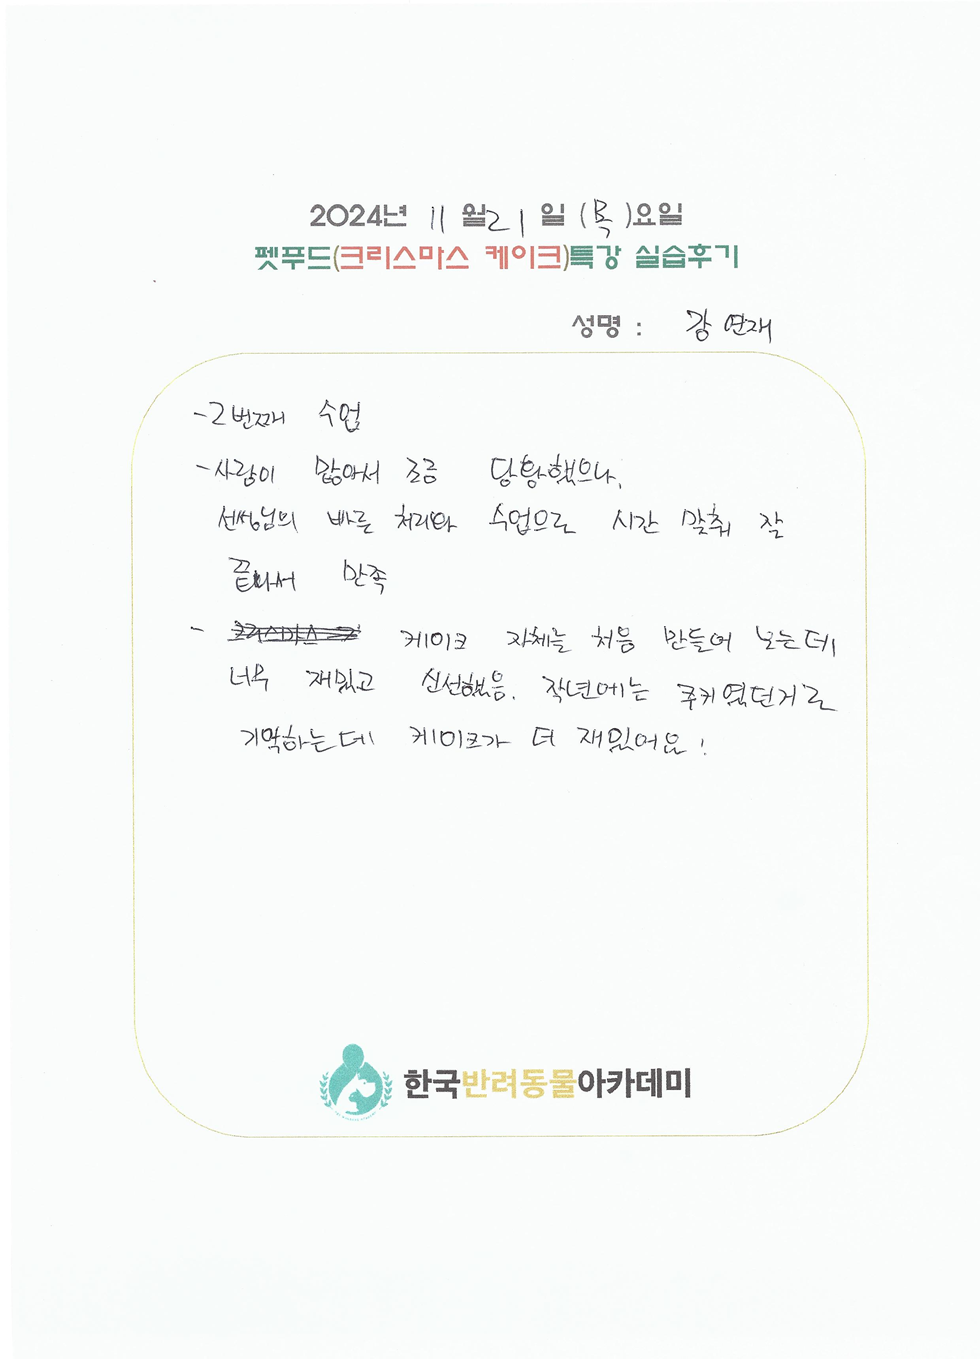 2024년 11월 21일 (목)요일
펫푸드(크리스마스 케이크)특강 실습후기
성명 : 강연재
- 2번째 수업
- 사람이 많아서 조금 당황했으나,
선생님의 빠른 처리와 수업으로 시간 맞춰 잘
끝나서 만족
- 케이크 자체는 처음 만들어 보는데
너무 재밌고 신선했음. 작년에는 쿠키였던거로
기억하는데 케이크가 더 재밌어요!
한국반려동물아카데미